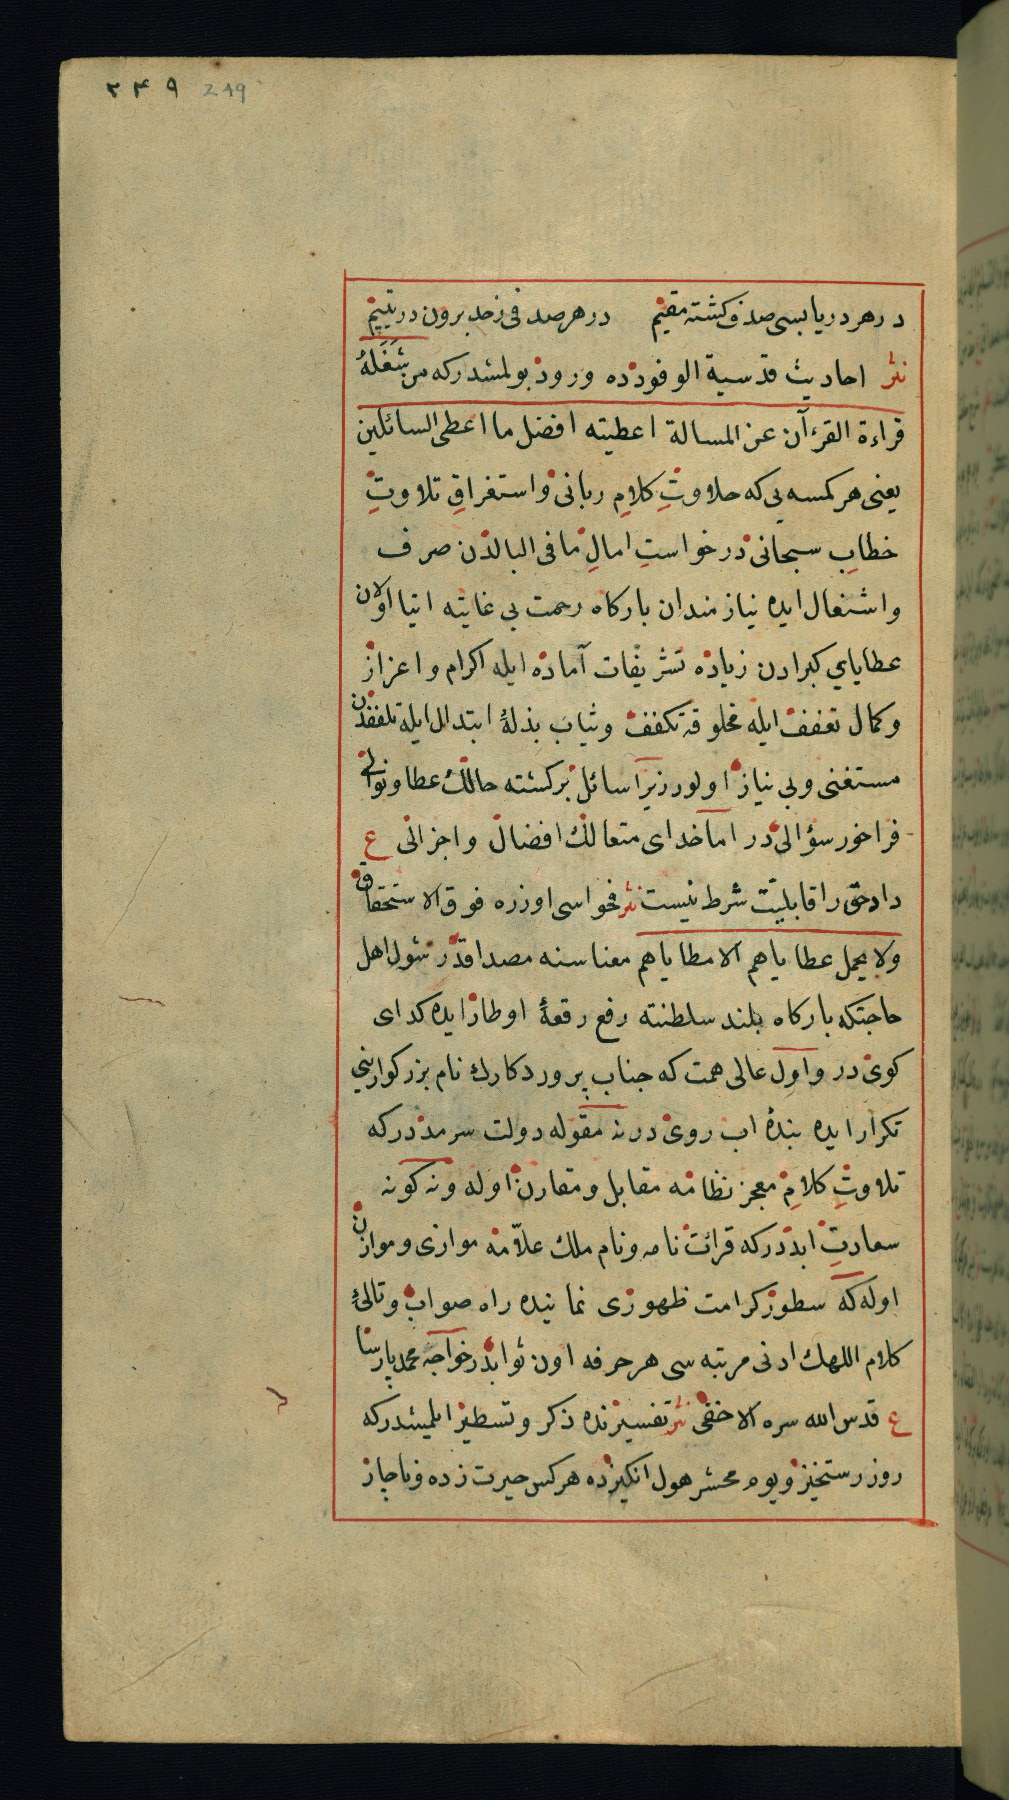 ٢۴٩ 249
در هر دریا بسی صدف کشته مقیم در هر صدفی زحد برون در یتیم
نثر احادیث قدسیة الوفودده ورود بولمشدر که من شَغَلَهُ
قراءة القرءآن عن المسالة اعطیته افضل ما اعطی السائلین
یعنی هر کمسه یی که حلاوتِ کلامِ ربانی و استغراقِ تلاوتِ
خطابِ سبحانی درخواستِ امالِ ما فی البالدن صرف
و اشتغال ایده نیازمندان بارکاه رحمت بی غایته اتیا اولان
عطایای کبرادن زیاده تشریفات آماده ایله اکرام و اعزاز
و کمال تعفف ایله مخلوقه تکفف و ثیاب بذلهٔ ابتدال ایله تلففدن
مستغنی و بی نیاز اولور زیرا سائل برکشته حالك عطا و نوالی
فراخور سؤالی در اما خدای متعالك افضال و اجزالی ع
داد حق را قابلیّت شرط نیست نثر فحواسی اوزره فوق الاستحقاق
ولا یحمل عطایاهم الا مطایاهم معناسنه مصداقدر شول اهل
حاجتکه بارکاه بلند سلطنته رفع رقعهٔ اوطار ایده کدای
کوی در و اول عالی همت که جناب پروردکارك نام بزرکوارینی
تکرار ایده بندهٔ اب روی در نه مقوله دولت سرمددر که
تلاوتِ کلامِ معجز نظامه مقابل و مقارن اوله و نه کونه
سعادتِ ابددر که قرائت نامه و نام ملك علّامه موازی و موازن
اوله که سطور کرامت ظهوری نماینده راه صواب و تالیٔ
کلام اللهك ادنی مرتبه سی هر حرفه اون ثوابدر خواجه محمد پارسا
ع قدس الله سره الاخفی نثر تفسیرنده ذکر و تسطیر ایلمیشدر که
روز رستخیز و یوم محشر هول انکیزده هر کس حیرت زده و ناچار